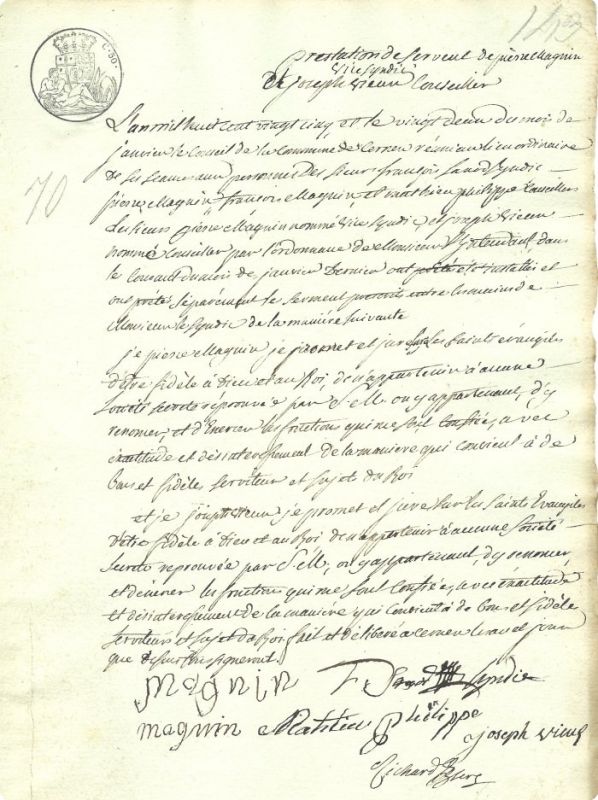 143
C. 50.
prestation de serment de pierre Magnin
Vice Syndic
& joseph vieux Conseiller
70
L'an mil huit cent vingt cinq et le vingt deux du mois de
janvier le Conseil de la Commune de Cernex réuni au lieu ordinaire
de ses seances aux personnes des sieurs françois Syndic
pierre Magnin françois Magnin, et philippe Conseillers
Les sieurs pierre Magnin nommé Vice Syndic, et joseph vieux
nommé Conseiller par l'ordonnance de Monsieur L'Intendant dans
le Courant du mois de janvier dernier ont été installés et
ont prété séparément le serment prescrit entre les mains de
Monsieur le Syndic de la manière suivante
je pierre Magnin je promet et jure sur les saints évangiles
d'être fidèle à Dieu et au Roi, de n'appartenir à aucune
société secrete réprouvée par S. elle ou y appartenant, d'y
renoncer, et d'Exercer les fonctions qui me soit Confiées, avec
exactitude et désintéressement de la manière qui convient à de
bons et fidèles serviteur et sujet du Roi
et je joseph vieux je promet et jure sur les saints Evangiles
d'être fidèle à Dieu et au Roi de n'appartenir à aucune société
secrete reprouvée par S. elle, ou y appartenant, d'y renoncer,
et d'exercer les fonctions qui me sont Confiées, avec éxactitude
et désintéressement de la manière qui Convient à de bons et fidèle
serviteurs et sujet du Roi fait et délibéré a cernex les an et jour
que dessus signeront
magnin F. Syndic
magnin philippe
joseph vieux
Richard